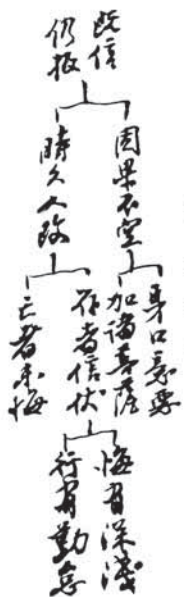 既信
仍报
因果不空
時久人改
身口意惡
加諸菩薩
存者信伏
亡者未悔
悔有深淺
行有勤怠